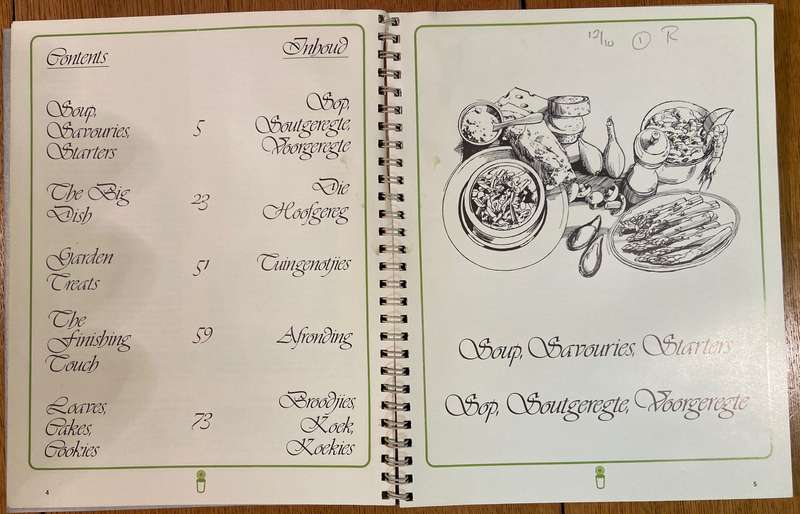 Contents
Inhoud
Soup,
Savouries,
Starters
5
Sop,
Soutgeregte,
Voorgeregte
The Big
Dish
23
Die
Hoofgereg
Garden
Treats
51
Tuingenotjies
The
Finishing
Touch
59
Afronding
Loaves,
Cakes,
Cookies
73
Broodjies,
Koek,
Koekies
4
12/10 1 R
Soup, Savouries, Starters
Sop, Soutgeregte, Voorgeregte
5